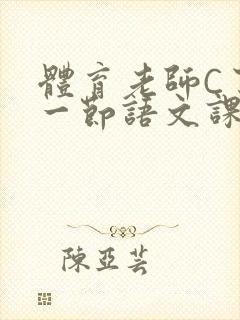 體育老師C
一節語文課
陳亞芸